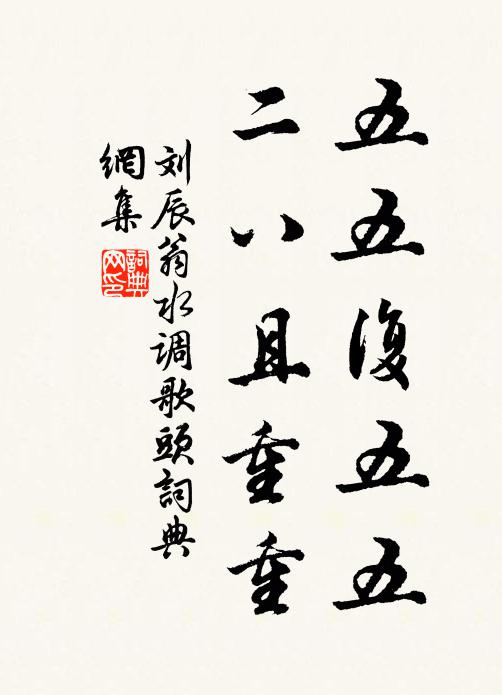 五五復五五
二八且重重
刘辰翁水调歌頭詞典
網集
詞典网印